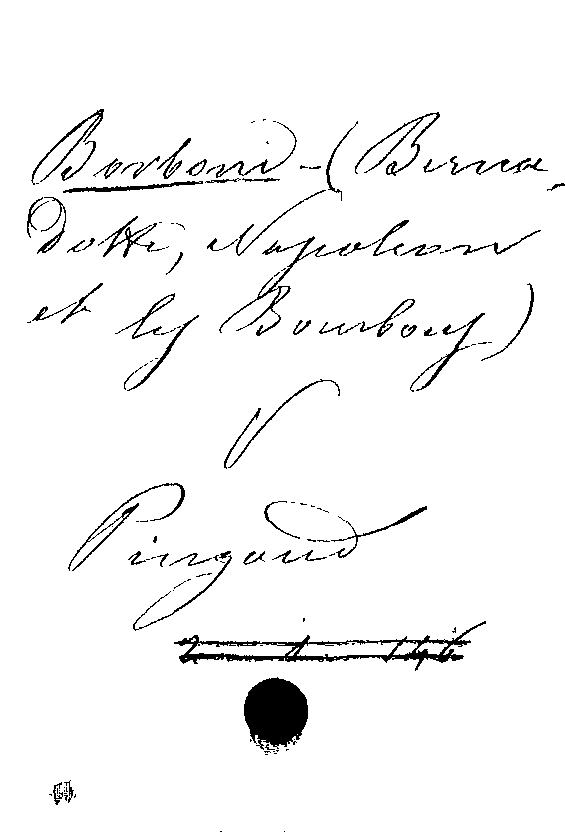 Borboni - (Berna-
dotte, Napoleon
et les Bourbons)
V
Pingaud